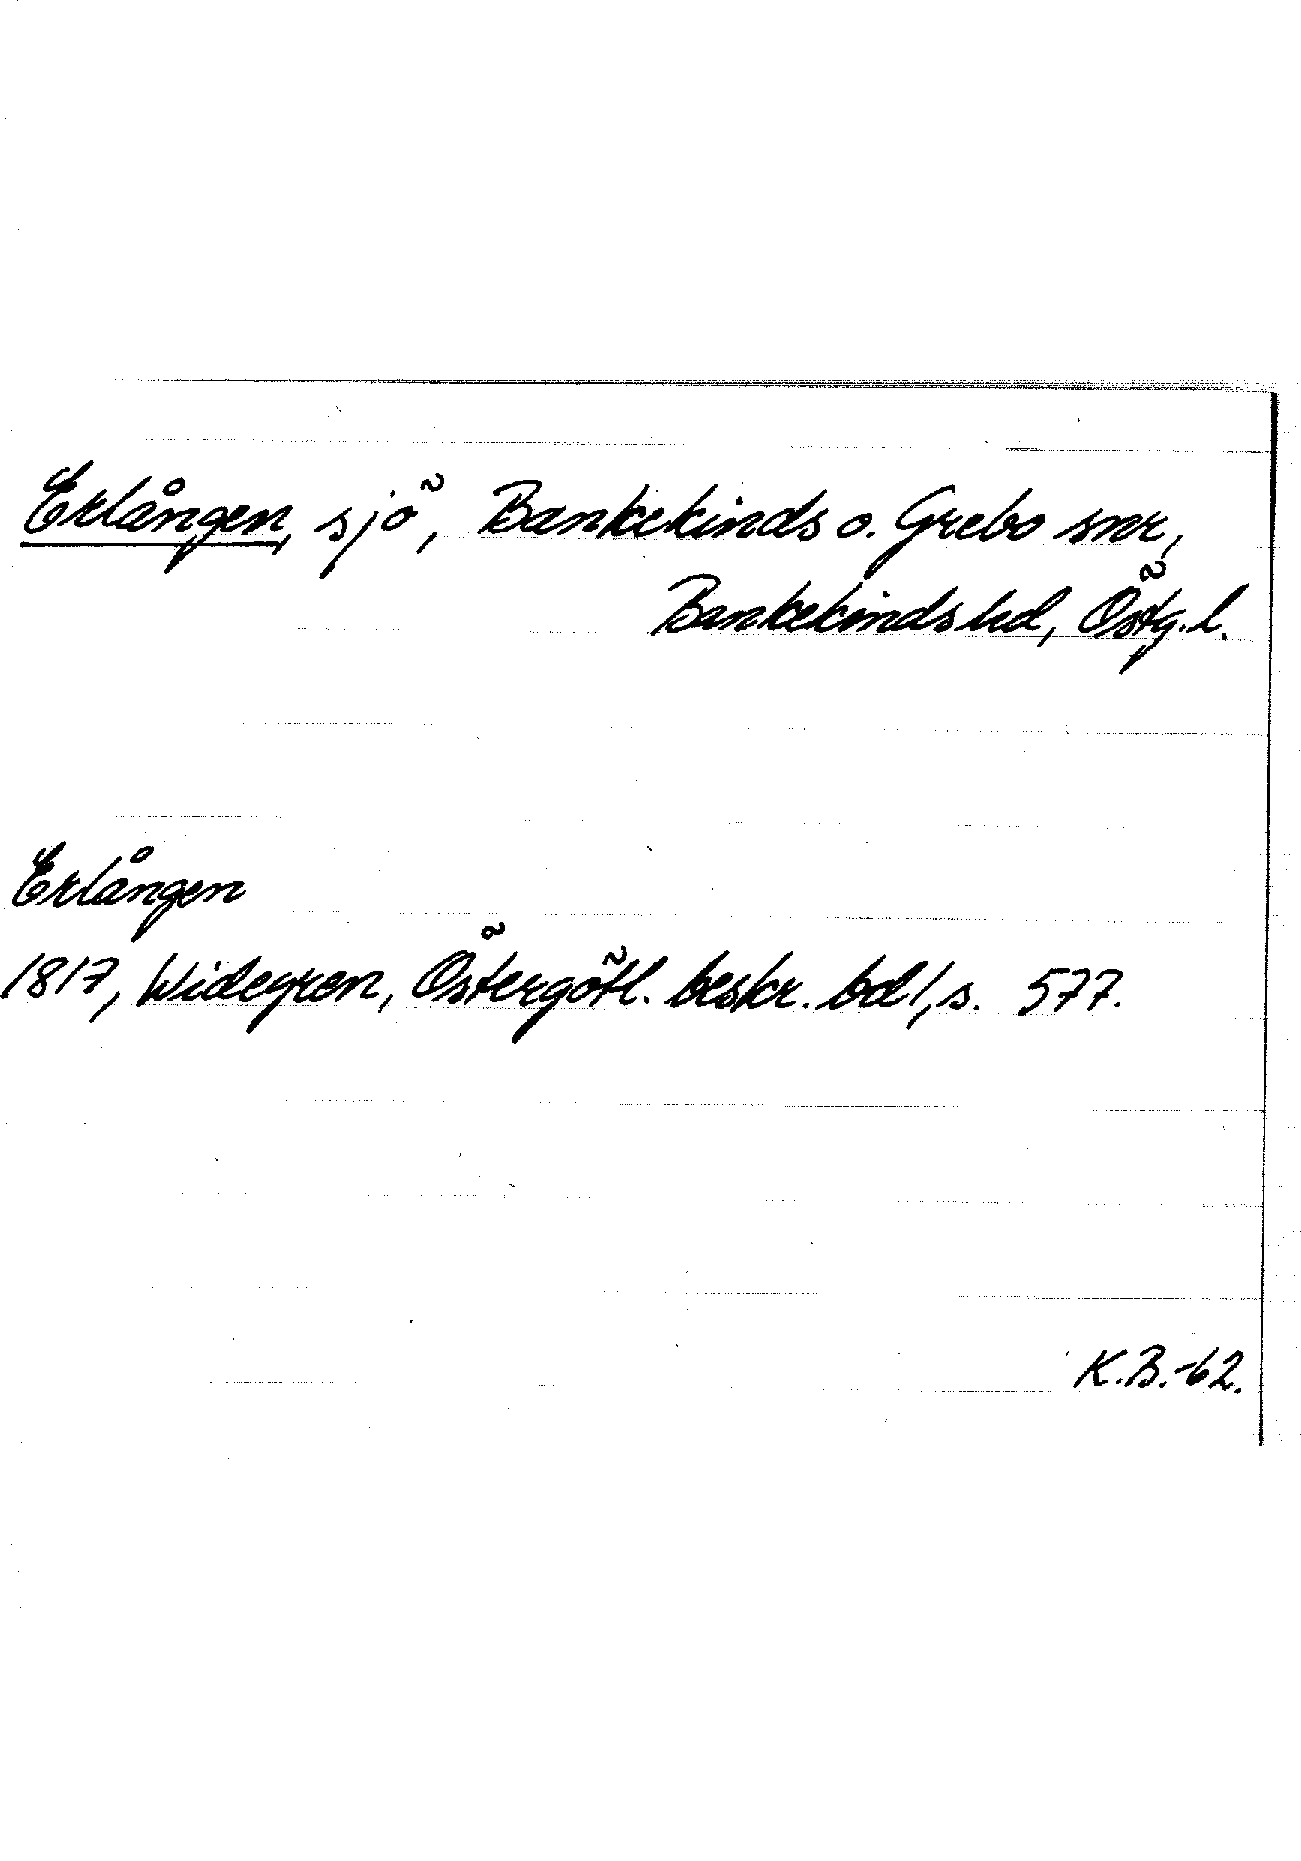 Erlången, sjö, Bankekinds o. Grebo snr,
Bankekinds hd, Östg. l.
Erlången
1817, Widegren, Östergötl. beskr. bd 1, s. 577.
K.B.-62.